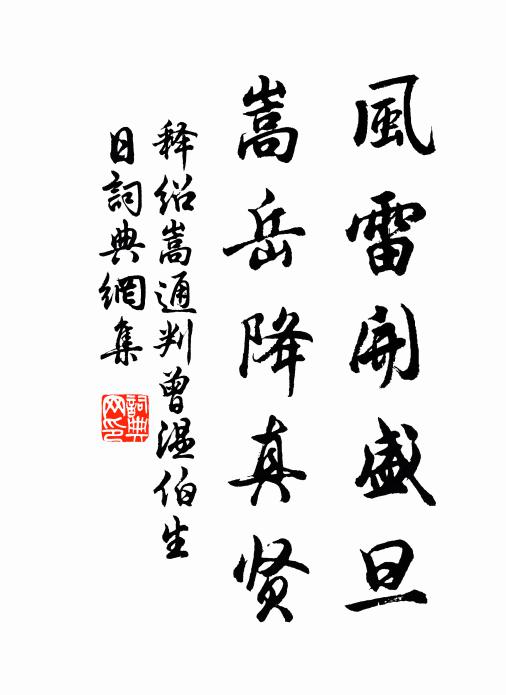 風雷開盛旦
嵩岳降真贤
释绍嵩通判曾温伯生
日詞典網集
詞典网印